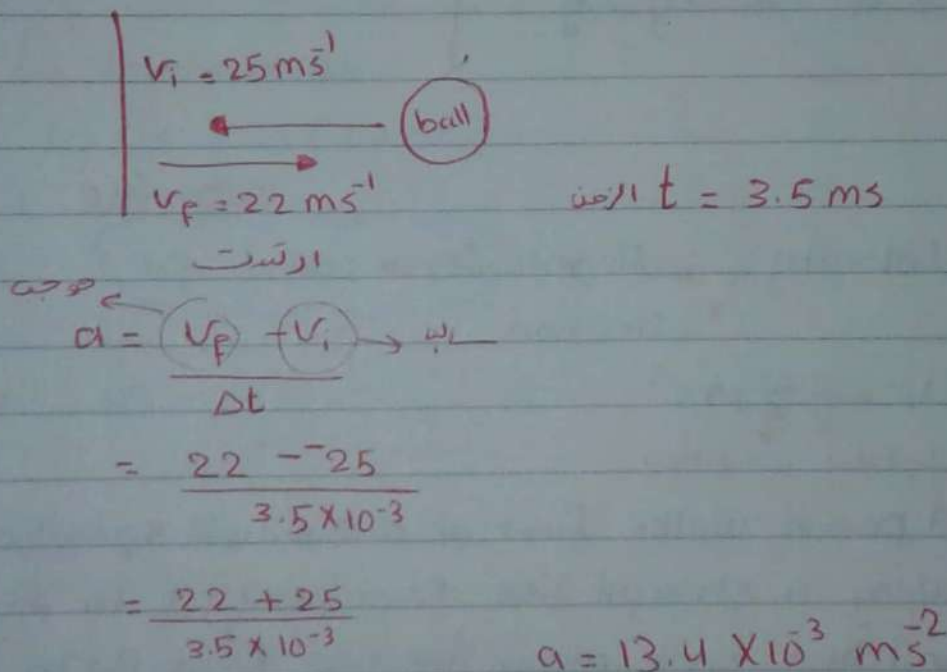 Vi = 25 ms⁻¹
ball
Vf = 22 ms⁻¹
الزمن t = 3.5 ms
ارتدت
موجب
a = Vf - Vi → سالب
Δt
= 22 - ⁻25
3.5 × 10⁻³
= 22 + 25
3.5 × 10⁻³
a = 13.4 × 10⁻³ ms⁻²